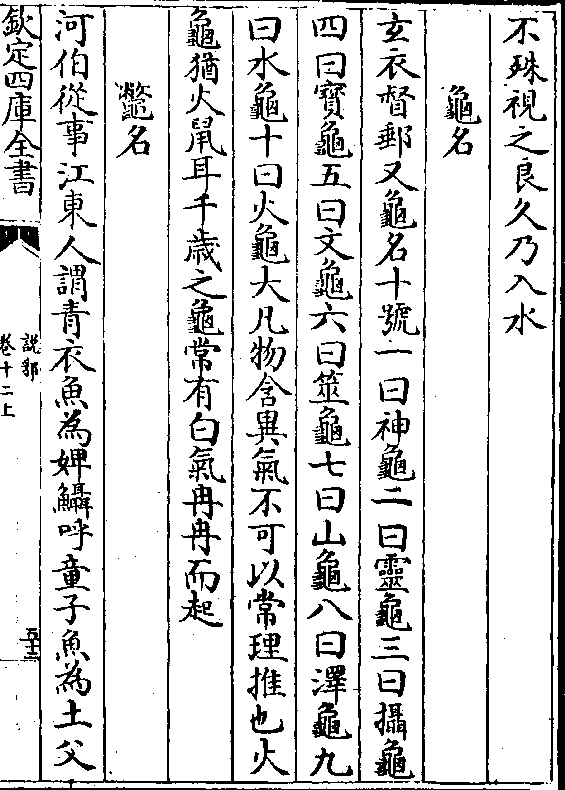 不殊視之良久乃入水
龜名
玄衣督郵又龜名十號一曰神龜二曰靈龜三曰攝龜
四曰寶龜五曰文龜六曰筮龜七曰山龜八曰澤龜九
曰水龜十曰火龜大凡物含異氣不可以常理推也火
龜猶火鼠耳千歲之龜常有白氣冉冉而起
鼈名
河伯從事江東人謂青衣魚為婢𩼝呼童子魚為土父
欽定四庫全書
說郛
卷十二上
五十三